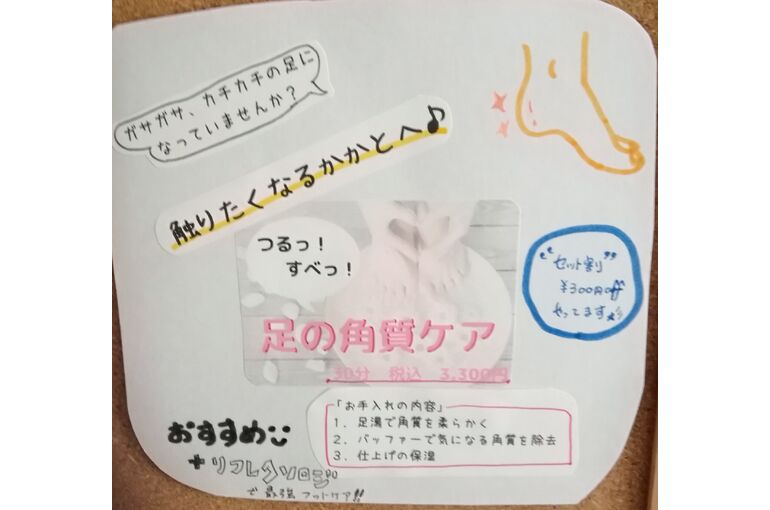 ガサガサ、カチカチの足に
なっていませんか？
触りたくなるかかとへ♪
つるっ！
すべっ！
"セット割り"
¥300円off
やってます
足の角質ケア
30分 税込 3,300円
「お手入れの内容」
1. 足湯で角質を柔らかく
2. バッファーで気になる角質を除去
3. 仕上げの保湿
おすすめ
+リフレクソロジー
で最強フットケア!!